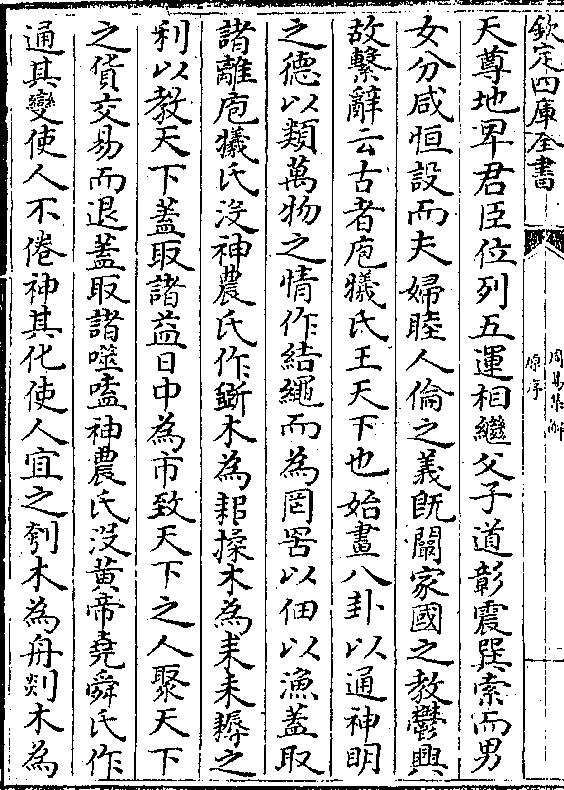 欽定四庫全書
周易集解
原序
天尊地卑君臣位列五運相繼父子道彰震巽索而男
女分咸恒設而夫婦睦人倫之義旣闡家國之教鬱興
故繫辭云古者庖犧氏王天下也始畫八卦以通神明
之德以類萬物之情作結繩而為罔罟以佃以漁蓋取
諸離庖犧氏沒神農氏作斲木為耜揉木為耒耒耨之
利以教天下蓋取諸益日中為市致天下之人聚天下
之貨交易而退蓋取諸噬嗑神農氏沒黃帝堯舜氏作
通其變使人不倦神其化使人宜之刳木為舟剡木為